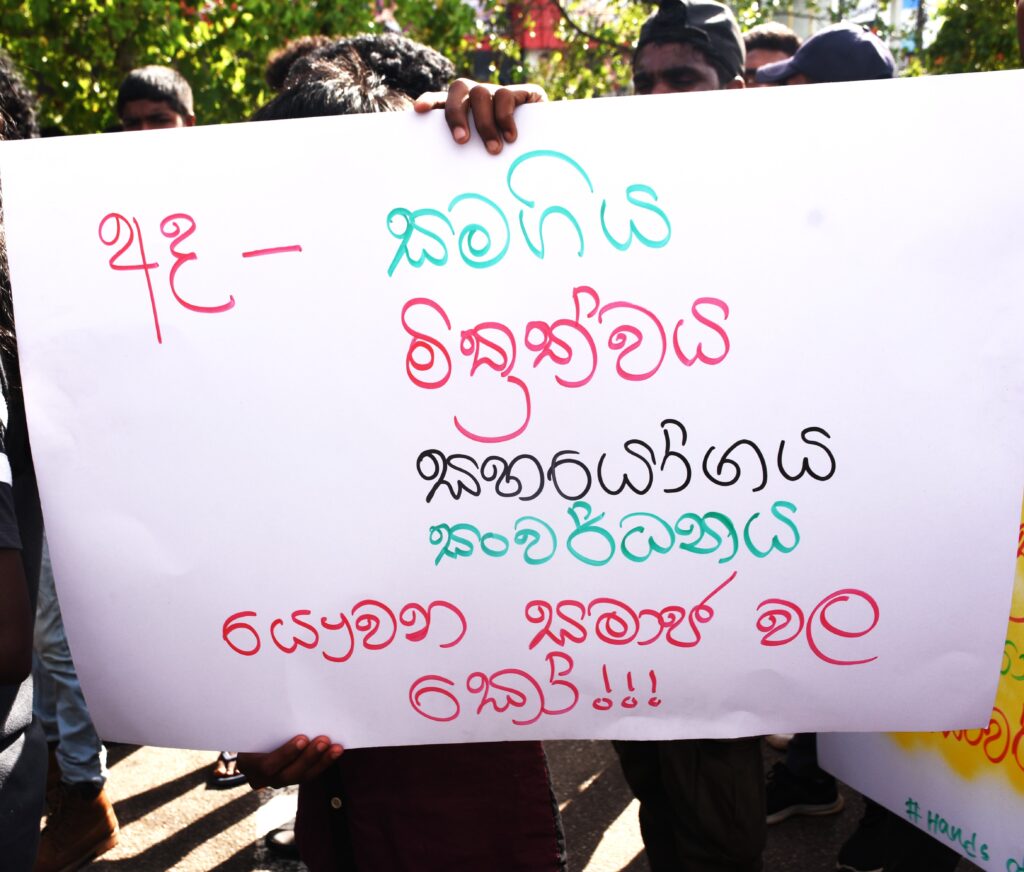 අද - සමගිය
මිත්‍රත්වය
සහයෝගය
සංවර්ධනය
යෞවන සමාජ වල
කෝ !!!
# Hands